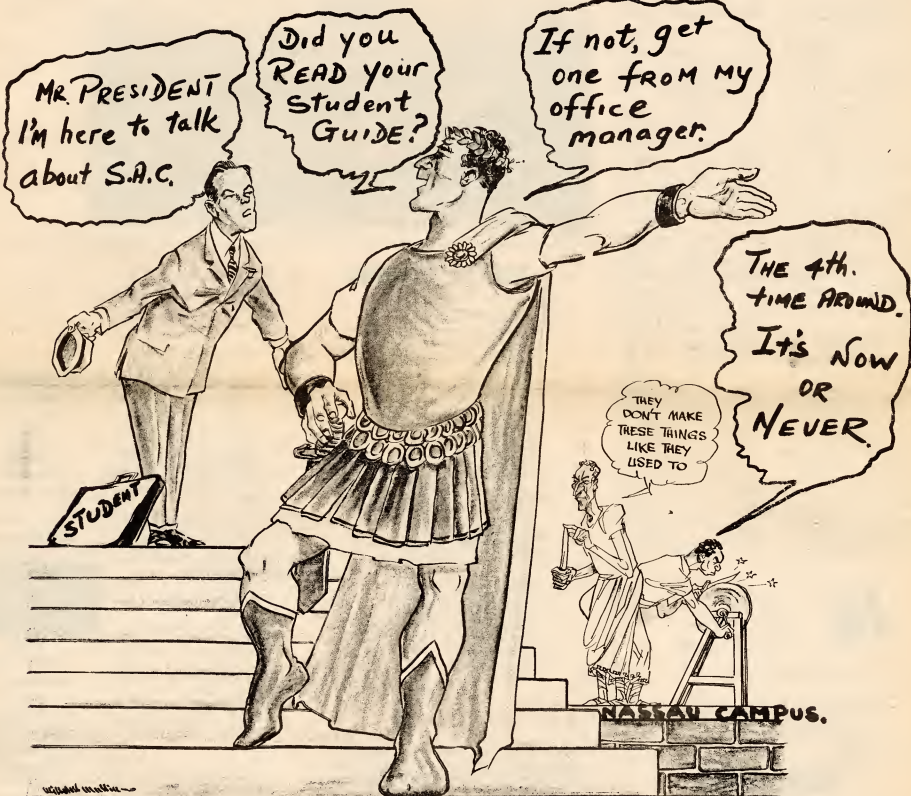 MR. PRESIDENT
I'm here to talk
about S.A.C.
Did you
READ your
Student
GUIDE?
If not, get
one FROM MY
office
manager.
THE 4th.
TIME AROUND.
It's NOW
OR
NEVER.
THEY
DON'T MAKE
THESE THINGS
LIKE THEY
USED TO
STUDENT
NASSAU CAMPUS.